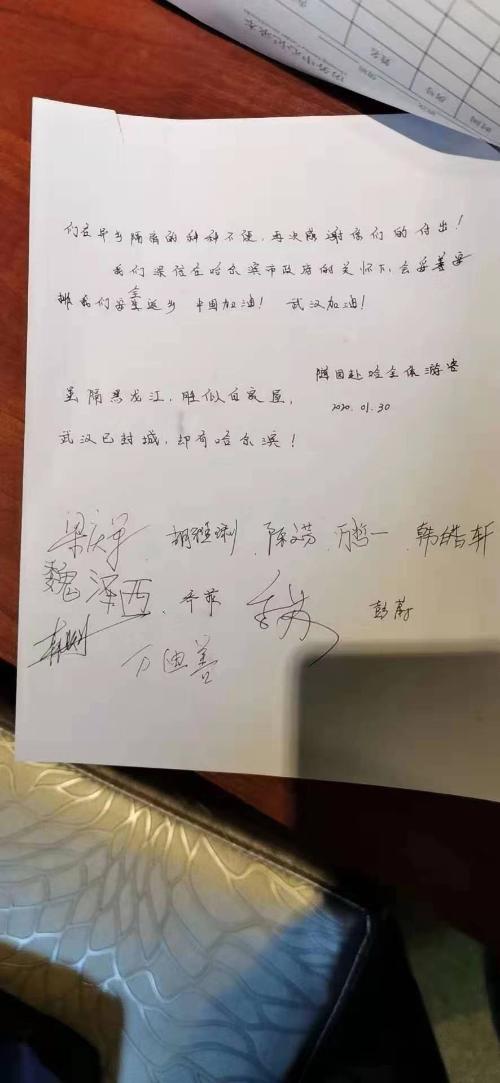 们在异乡隔离的种种不便，再次感谢你们的付出！
我们深信在哈尔滨市政府的关怀下，会妥善安
排我们安全返乡 中国加油！ 武汉加油！
随团赴哈全体游客
虽隔黑龙江，胜似自家屋，
2020.01.30
武汉已封城，却有哈尔滨！
陈 万哲一 韩皓轩
魏泽西
彭蔚
万迪善